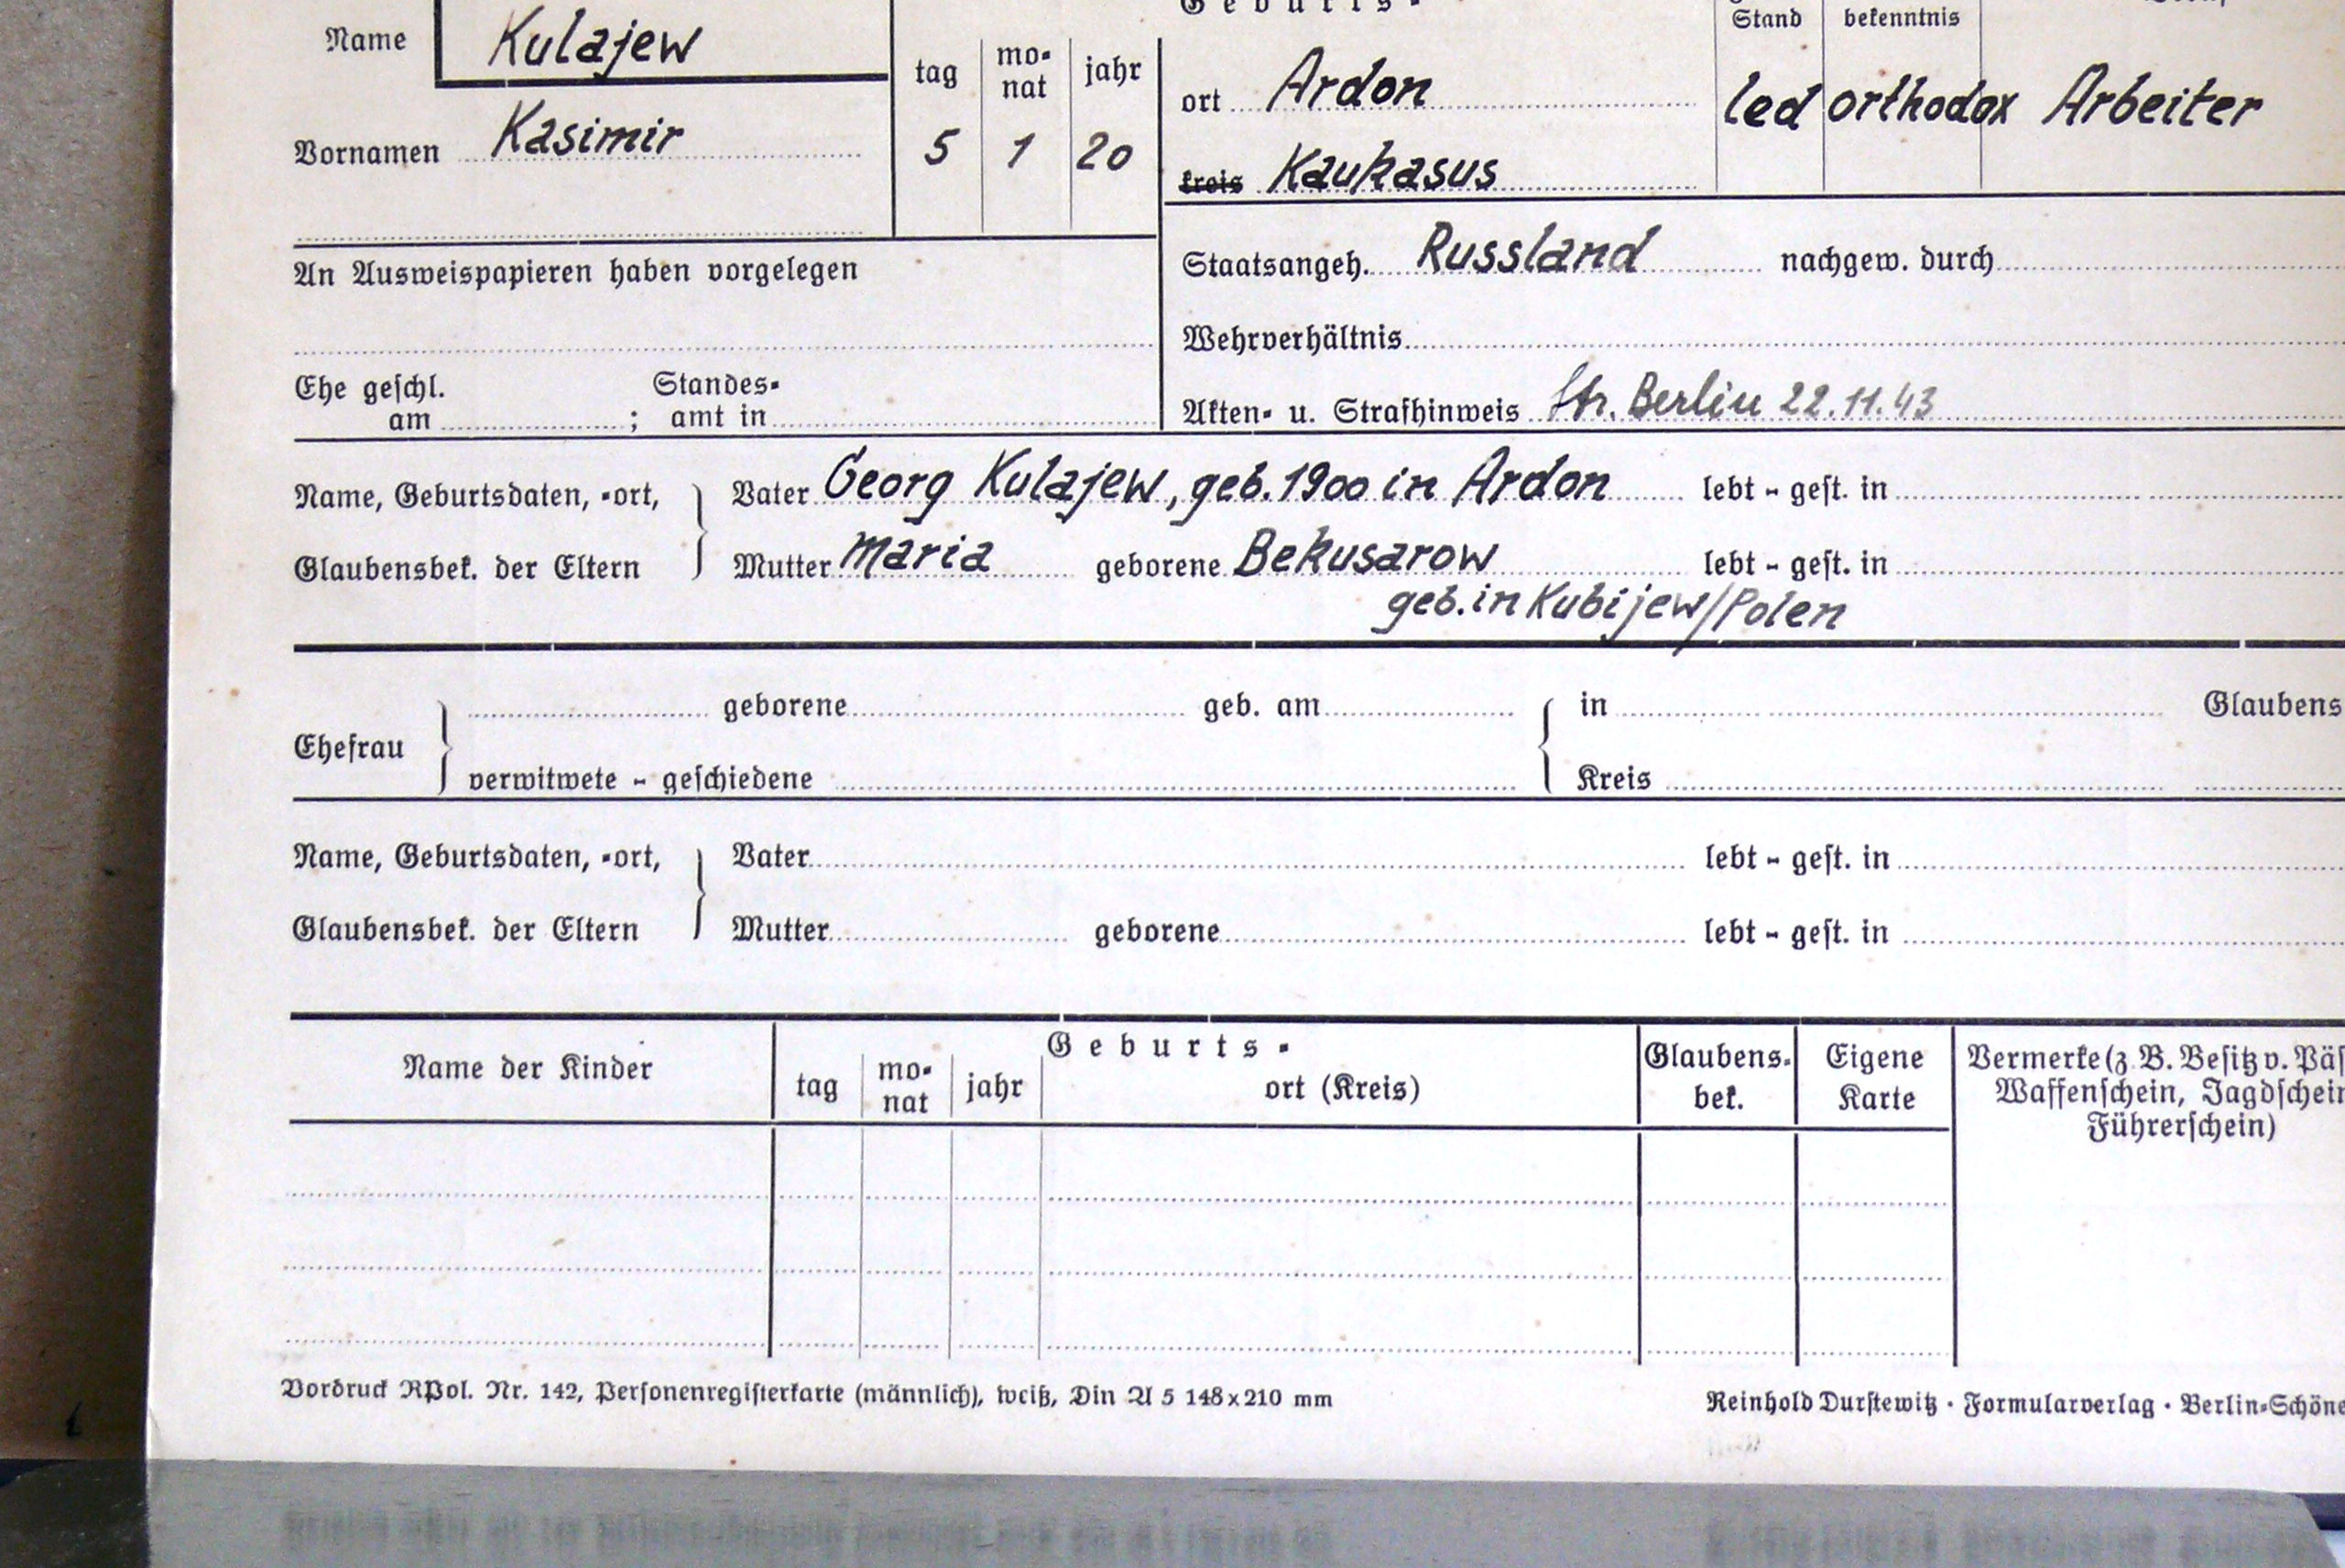 Geburts-
Stand bekenntnis
Name Kulajew
tag mo-nat jahr
ort Ardon
led orthodox Arbeiter
Vornamen Kasimir
5 1 20
kreis Kaukasus
An Ausweispapieren haben vorgelegen
Staatsangeh. Russland nachgew. durch
Wehrverhältnis
Ehe geschl. am ; Standes-amt in
Akten- u. Strafhinweis Str. Berlin 22.11.43
Name, Geburtsdaten, -ort, Vater Georg Kulajew, geb. 1900 in Ardon lebt - gest. in
Glaubensbek. der Eltern Mutter Maria geborene Bekusarow lebt - gest. in
geb. in Kubijew/Polen
geborene geb. am in Glaubens
Ehefrau
verwitwete - geschiedene Kreis
Name, Geburtsdaten, -ort, Vater lebt - gest. in
Glaubensbek. der Eltern Mutter geborene lebt - gest. in
Name der Kinder
Geburts-
tag mo-nat jahr ort (Kreis)
Glaubens-bek.
Eigene Karte
Vermerke (z. B. Besitz v. Päs
Waffenschein, Jagdschein
Führerschein)
Vordruck RPol. Nr. 142, Personenregisterkarte (männlich), weiß, Din A 5 148x210 mm
Reinhold Durstewitz · Formularverlag · Berlin-Schöne